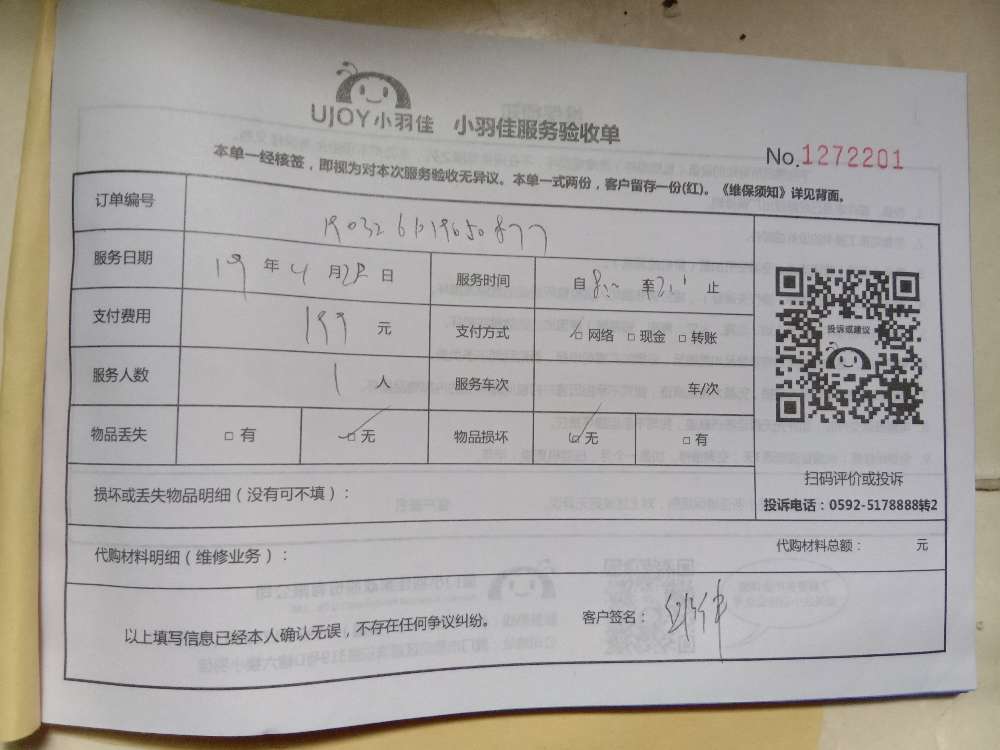 UJOY小羽佳 小羽佳服务验收单
No.1272201
本单一经核签，即视为对本次服务验收无异议。本单一式两份，客户留存一份(红)。《维保须知》详见背面。
订单编号
服务日期 19 年 4 月 28 日 服务时间 自 8:00 至 止
支付费用 199 元 支付方式 □网络 □现金 □转账
投诉或建议
服务人数 1 人 服务车次 车/次
物品丢失 □ 有 □无 物品损坏 □无 □有
扫码评价或投诉
损坏或丢失物品明细（没有可不填）：
投诉电话：0592-5178888转2
代购材料明细（维修业务）：
代购材料总额： 元
以上填写信息已经本人确认无误，不存在任何争议纠纷。
客户签名：